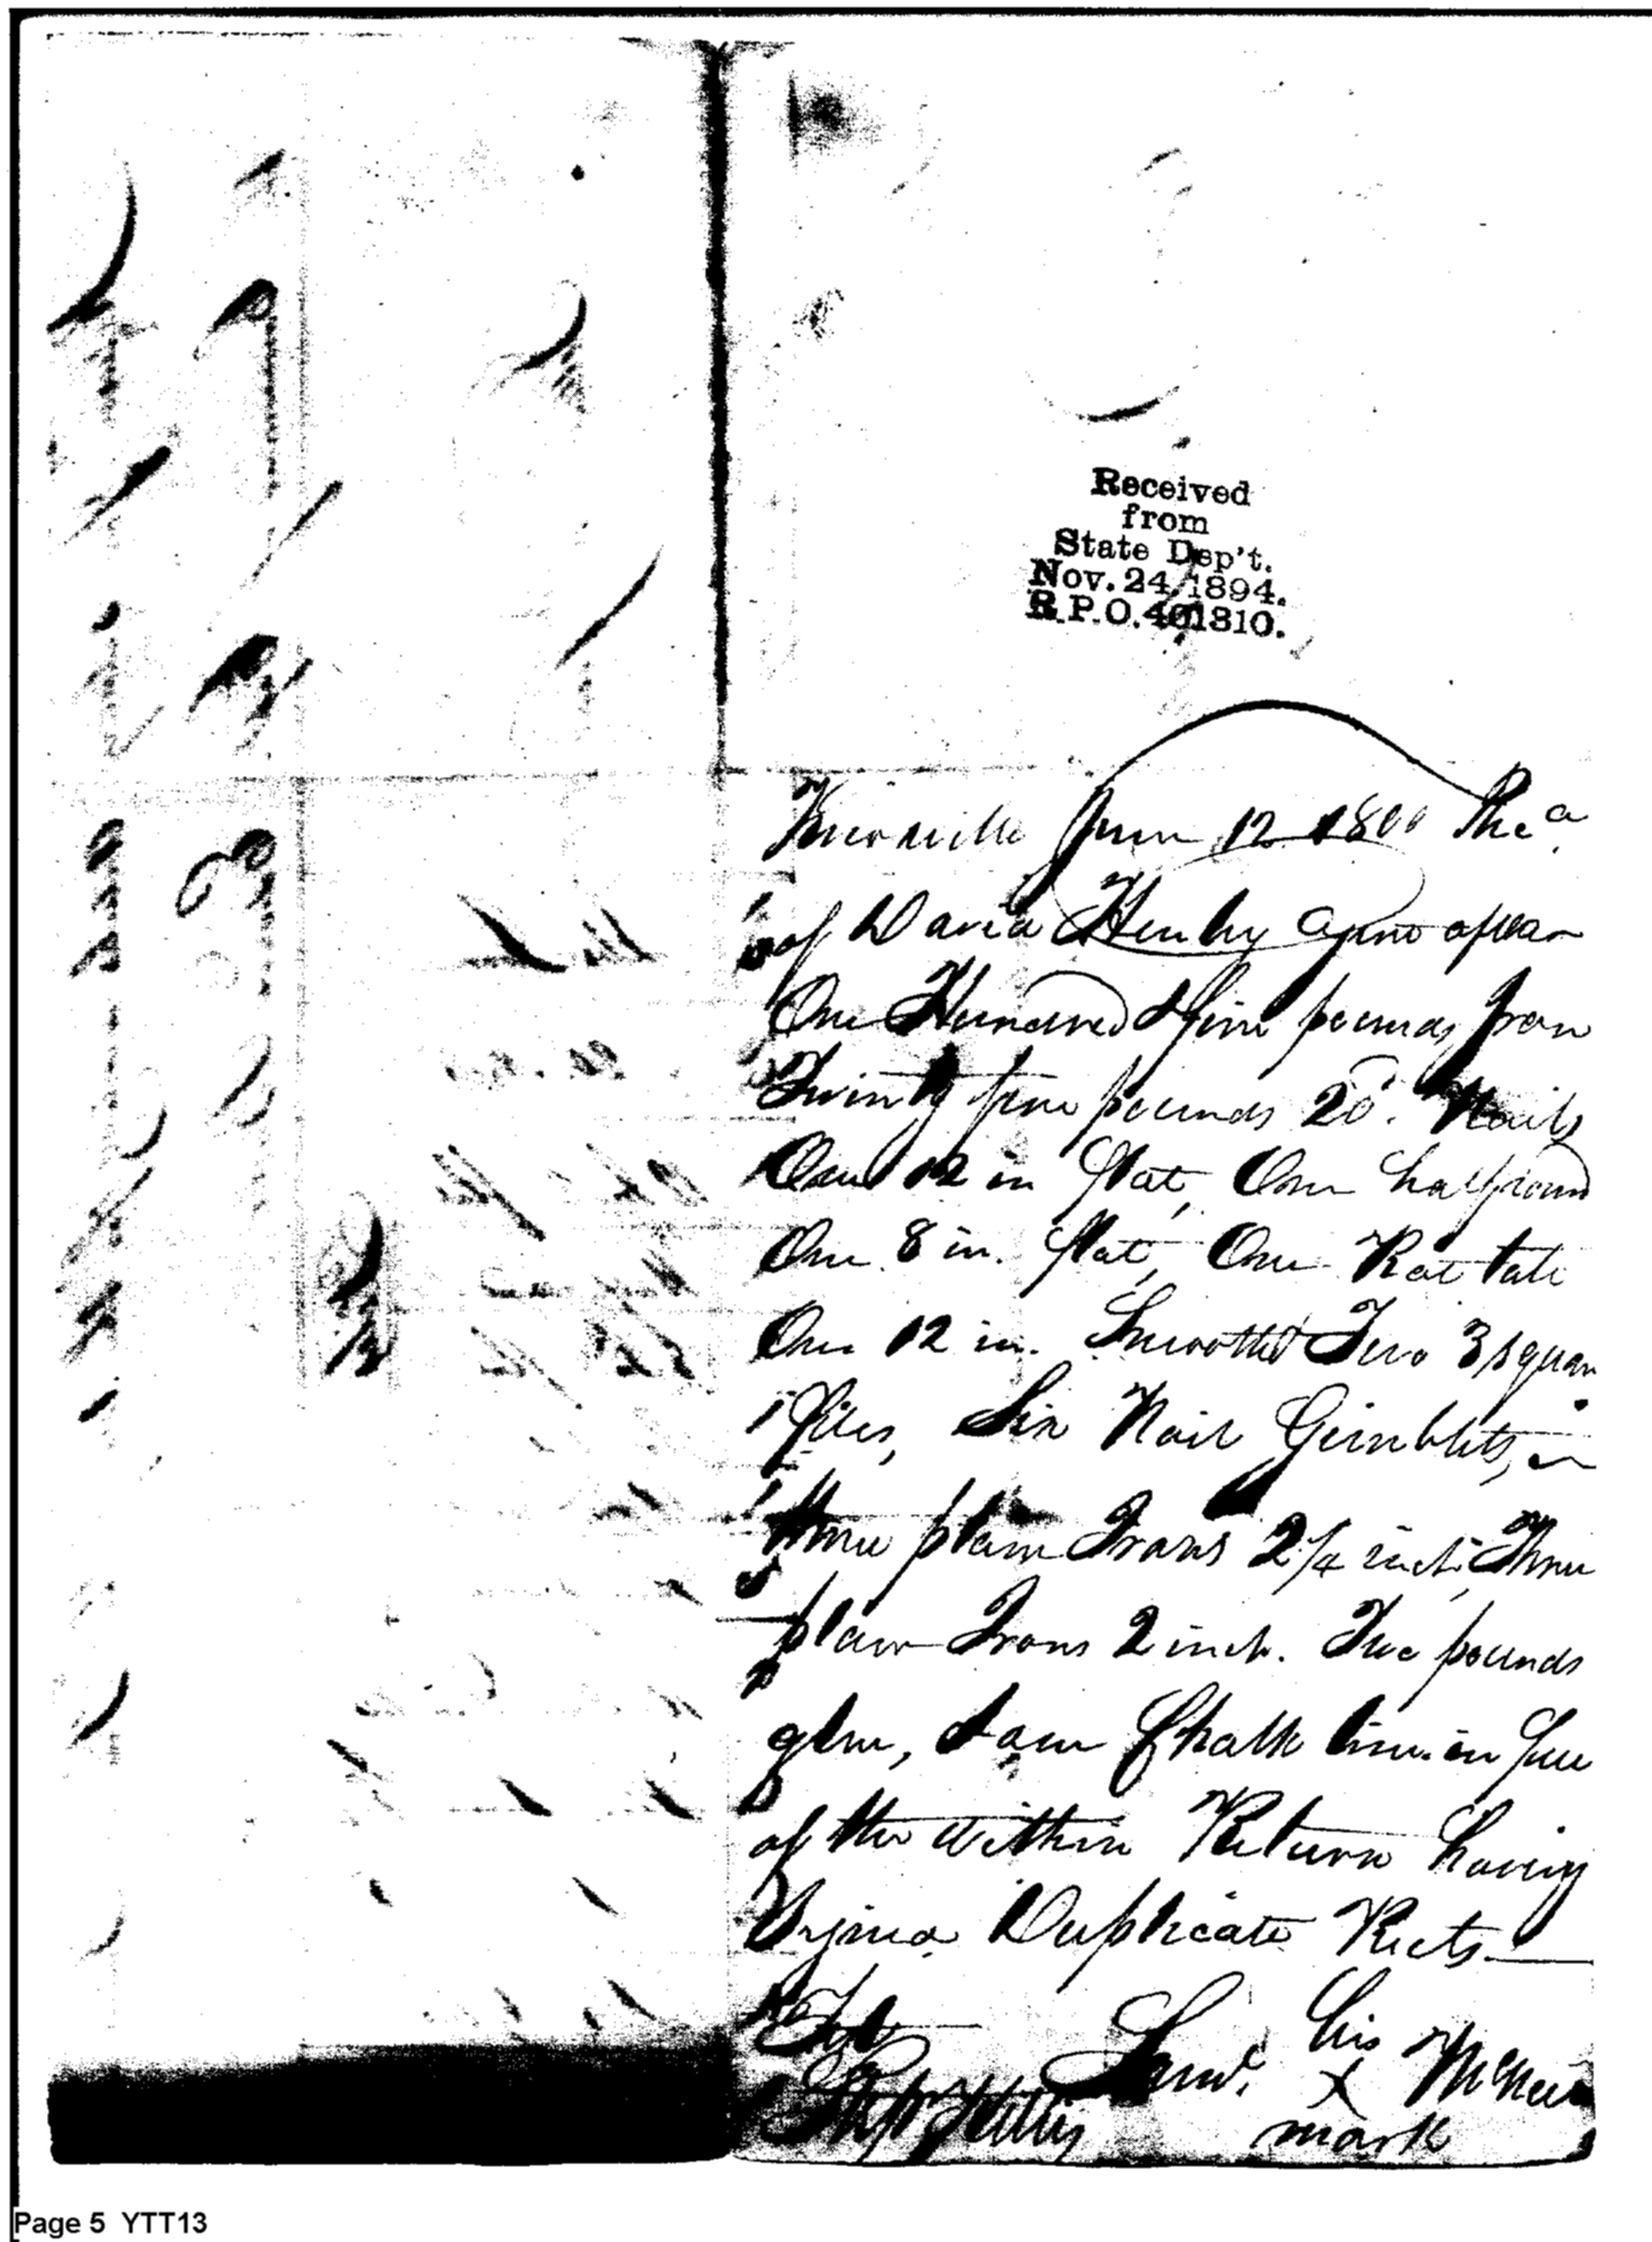 Received
from
State Dep't.
Nov. 24, 1894.
R.P.O. 401310.
Knoxville June 12 1800 Rec.d
of David Henley Agent of war
One Hundred & five pounds Iron
Twenty five pounds 20.d Nails
One 12 in flat, One half round
One 8 in. flat, One Rat tale
One 12 in. Smoothed Two 3 square
files, Six Nail Gimblets,
three plain Irons 2 1/4 inch, Three
plain Irons 2 inch. Two pounds
glue, & one Chalk line. in full
of the within Return having
Signed Duplicate Rects.
Saml. his
x
mark
Page 5 YTT13